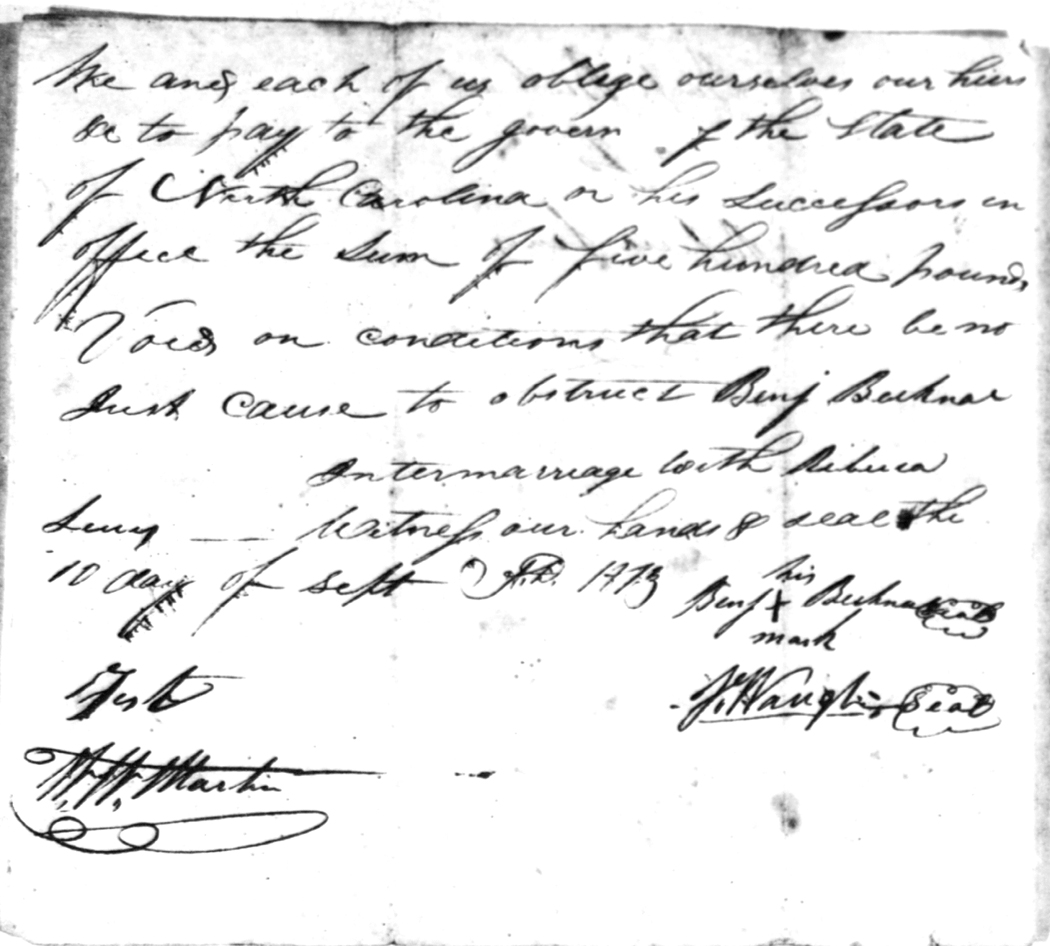 We and each of us oblige ourselves our heirs
&c to pay to the govern of the State
of North Carolina or his successors in
office the Sum of five hundred pounds
Void on conditions that there be no
Just cause to obstruct Benj Bucknar
Intermarriage with
Witness our hands & seal the
10 day of Sept A.D.
his
Benj X Bucknar Seal
mark
Test
J. Waugh Seal
W. W. Martin